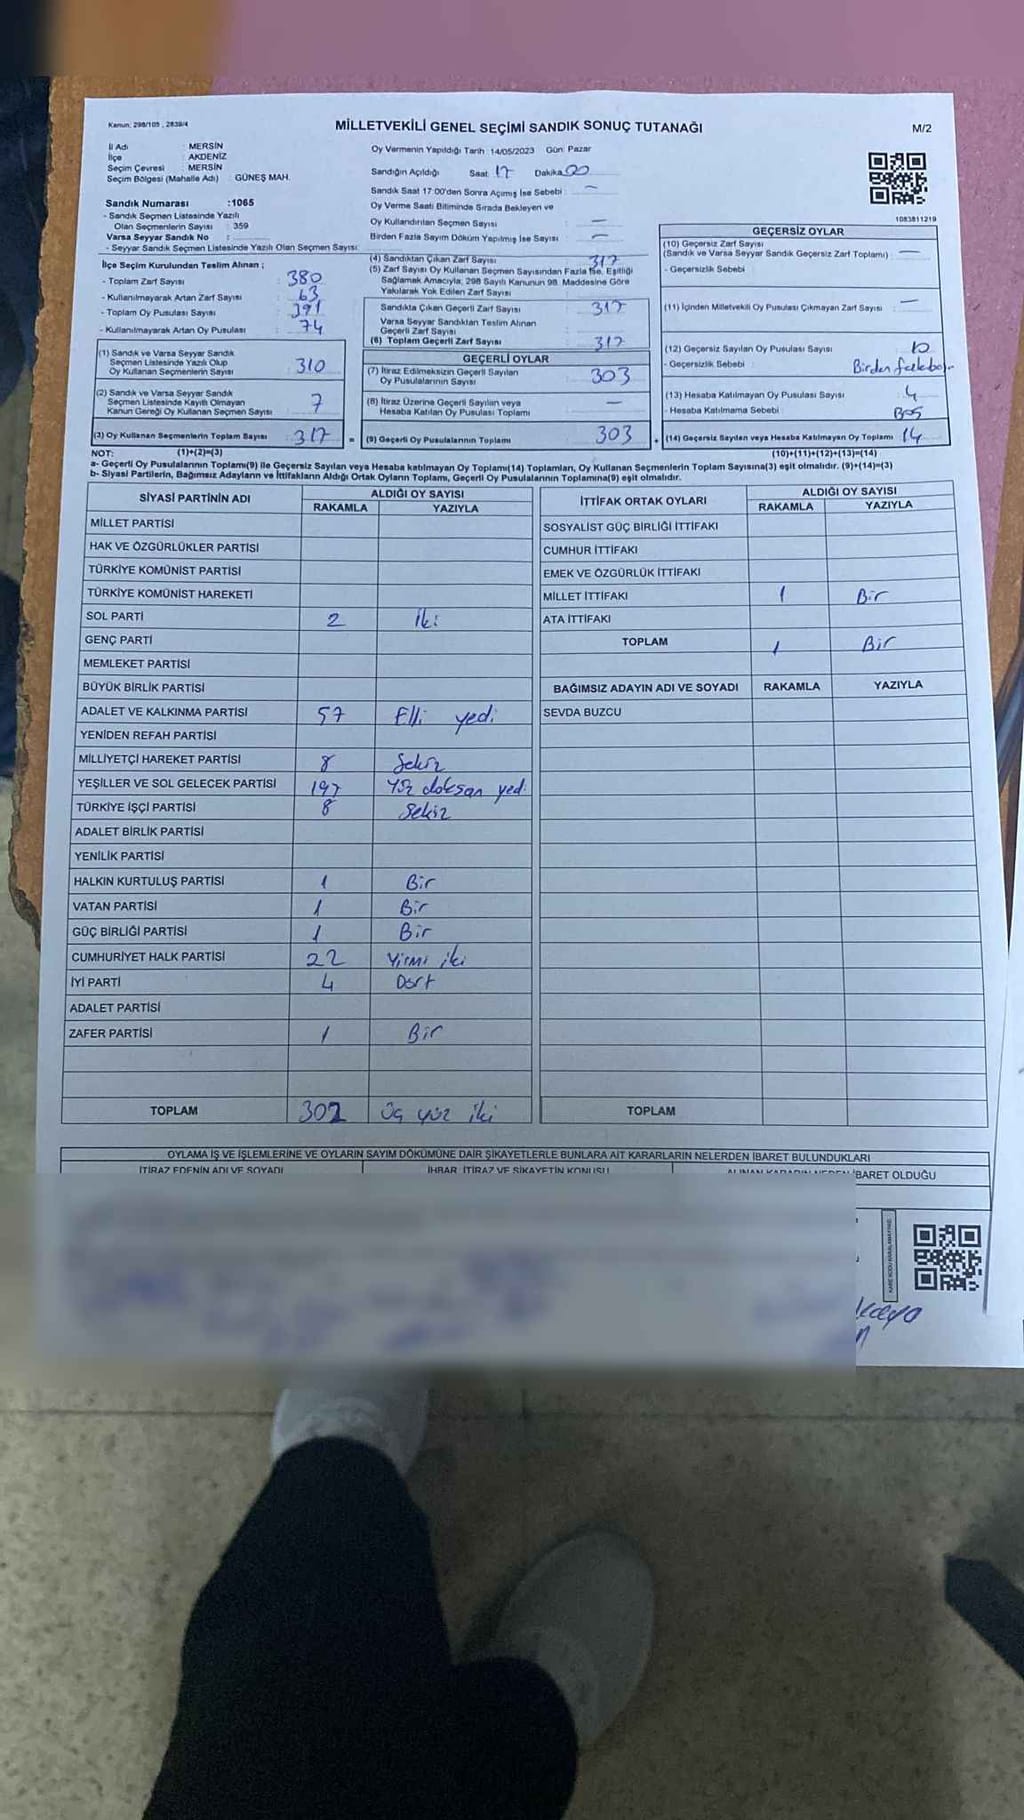 Kanun: 298/105 , 2839/4
MİLLETVEKİLİ GENEL SEÇİMİ SANDIK SONUÇ TUTANAĞI
M/2
İl Adı : MERSİN
İlçe : AKDENİZ
Seçim Çevresi : MERSİN
Seçim Bölgesi (Mahalle Adı) : GÜNEŞ MAH.
Sandık Numarası :1065
- Sandık Seçmen Listesinde Yazılı
Olan Seçmenlerin Sayısı : 359
Varsa Seyyar Sandık No :
- Seyyar Sandık Seçmen Listesinde Yazılı Olan Seçmen Sayısı:
Oy Vermenin Yapıldığı Tarih :14/05/2023 Gün: Pazar
Sandığın Açıldığı Saat: 17 Dakika: 00
Sandık Saat 17:00'den Sonra Açımış İse Sebebi : —
Oy Verme Saati Bitiminde Sırada Bekleyen ve
Oy Kullandırılan Seçmen Sayısı : —
Birden Fazla Sayım Döküm Yapılmış İse Sayısı : —
1083811219
İlçe Seçim Kurulundan Teslim Alınan ;
- Toplam Zarf Sayısı : 380
- Kullanılmayarak Artan Zarf Sayısı : 63
- Toplam Oy Pusulası Sayısı : 391
- Kullanılmayarak Artan Oy Pusulası : 74
(1) Sandık ve Varsa Seyyar Sandık
Seçmen Listesinde Yazılı Olup
Oy Kullanan Seçmenlerin Sayısı : 310
(2) Sandık ve Varsa Seyyar Sandık
Seçmen Listesinde Kayıtlı Olmayan
Kanun Gereği Oy Kullanan Seçmen Sayısı : 7
(3) Oy Kullanan Seçmenlerin Toplam Sayısı : 317 =
(4) Sandıktan Çıkan Zarf Sayısı : 317
(5) Zarf Sayısı Oy Kullanan Seçmen Sayısından Fazla İse, Eşitliği
Sağlamak Amacıyla, 298 Sayılı Kanunun 98. Maddesine Göre
Yakılarak Yok Edilen Zarf Sayısı :
Sandıkta Çıkan Geçerli Zarf Sayısı : 317
Varsa Seyyar Sandıktan Teslim Alınan
Geçerli Zarf Sayısı :
(6) Toplam Geçerli Zarf Sayısı : 317
GEÇERLİ OYLAR
(7) İtiraz Edilmeksizin Geçerli Sayılan
Oy Pusulalarının Sayısı : 303
(8) İtiraz Üzerine Geçerli Sayılan veya
Hesaba Katılan Oy Pusulası Toplamı : —
(9) Geçerli Oy Pusulalarının Toplamı : 303 +
GEÇERSİZ OYLAR
(10) Geçersiz Zarf Sayısı
(Sandık ve Varsa Seyyar Sandık Geçersiz Zarf Toplamı) : —
- Geçersizlik Sebebi :
(11) İçinden Milletvekili Oy Pusulası Çıkmayan Zarf Sayısı : —
(12) Geçersiz Sayılan Oy Pusulası Sayısı : 10
- Geçersizlik Sebebi : Birden
(13) Hesaba Katılmayan Oy Pusulası Sayısı : 4
- Hesaba Katılmama Sebebi : Boş
(14) Geçersiz Sayılan veya Hesaba Katılmayan Oy Toplamı : 14
NOT: (1)+(2)=(3)
(10)+(11)+(12)+(13)=(14)
a- Geçerli Oy Pusulalarının Toplamı(9) ile Geçersiz Sayılan veya Hesaba katılmayan Oy Toplamı(14) Toplamları, Oy Kullanan Seçmenlerin Toplam Sayısına(3) eşit olmalıdır. (9)+(14)=(3)
b- Siyasi Partilerin, Bağımsız Adayların ve İttifakların Aldığı Ortak Oyların Toplamı, Geçerli Oy Pusulalarının Toplamına(9) eşit olmalıdır.
SİYASİ PARTİNİN ADI ALDIĞI OY SAYISI
RAKAMLA YAZIYLA
MİLLET PARTİSİ
HAK VE ÖZGÜRLÜKLER PARTİSİ
TÜRKİYE KOMÜNİST PARTİSİ
TÜRKİYE KOMÜNİST HAREKETİ
SOL PARTİ 2 iki
GENÇ PARTİ
MEMLEKET PARTİSİ
BÜYÜK BİRLİK PARTİSİ
ADALET VE KALKINMA PARTİSİ 57 Elli yedi
YENİDEN REFAH PARTİSİ
MİLLİYETÇİ HAREKET PARTİSİ 8 Sekiz
YEŞİLLER VE SOL GELECEK PARTİSİ 197 Yüz doksan yedi
TÜRKİYE İŞÇİ PARTİSİ 8 Sekiz
ADALET BİRLİK PARTİSİ
YENİLİK PARTİSİ
HALKIN KURTULUŞ PARTİSİ 1 Bir
VATAN PARTİSİ 1 Bir
GÜÇ BİRLİĞİ PARTİSİ 1 Bir
CUMHURİYET HALK PARTİSİ 22 Yirmi iki
İYİ PARTİ 4 Dört
ADALET PARTİSİ
ZAFER PARTİSİ 1 Bir
TOPLAM 302 Üç yüz iki
İTTİFAK ORTAK OYLARI ALDIĞI OY SAYISI
RAKAMLA YAZIYLA
SOSYALİST GÜÇ BİRLİĞİ İTTİFAKI
CUMHUR İTTİFAKI
EMEK VE ÖZGÜRLÜK İTTİFAKI
MİLLET İTTİFAKI 1 Bir
ATA İTTİFAKI
TOPLAM 1 Bir
BAĞIMSIZ ADAYIN ADI VE SOYADI RAKAMLA YAZIYLA
SEVDA BUZCU
TOPLAM
OYLAMA İŞ VE İŞLEMLERİNE VE OYLARIN SAYIM DÖKÜMÜNE DAİR ŞİKAYETLERLE BUNLARA AİT KARARLARIN NELERDEN İBARET BULUNDUKLARI
İTİRAZ EDENİN ADI VE SOYADI İHBAR, İTİRAZ VE ŞİKAYETİN KONUSU ALINAN KARARIN NEDEN İBARET OLDUĞU